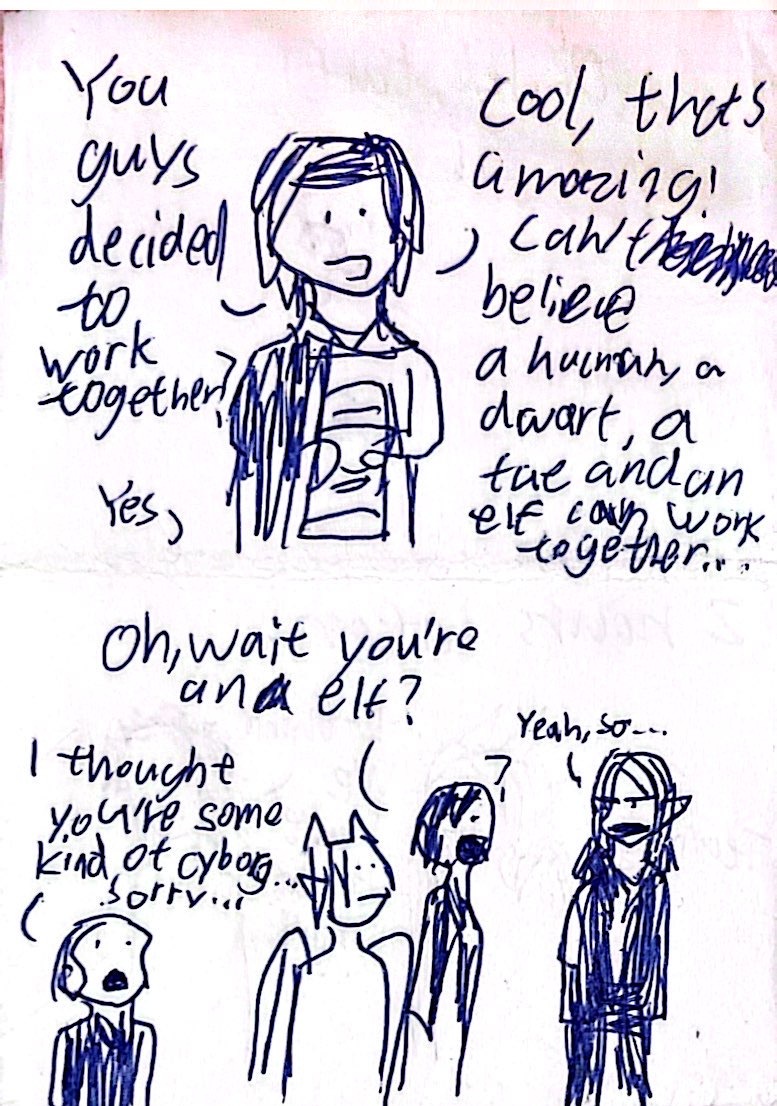 You
guys
decided
to
work
together?
Yes,
Cool, thats
amazing!
can't
believe
a human, a
dwarf, a
fae and an
elf can work
together...
Oh, wait you're
an elf?
I thought
you're some
kind of cyborg...
sorry...
?
Yeah, so...